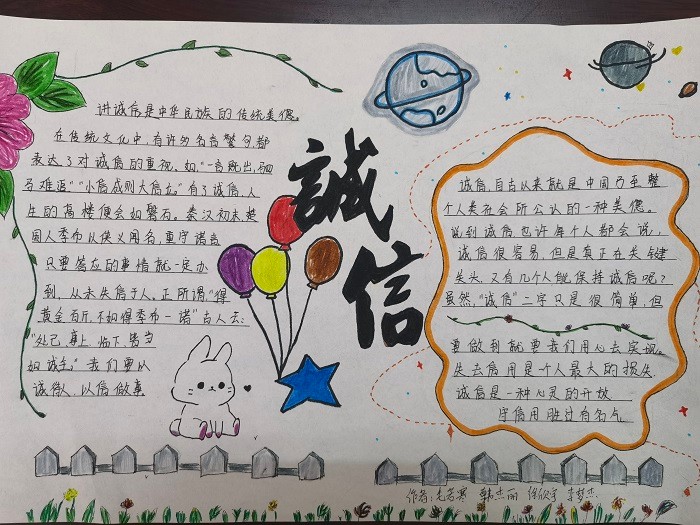 讲诚信是中华民族的传统美德。
在传统文化中,有许多名言警句都
表达了对诚信的重视。如,"一言既出,驷
马难追""小信成则大信立"有了诚信,人
生的高楼便会如磐石。秦汉初未楚
国人季布以侠义闻名,重守诺言
只要答应的事情就一定办
到,从未失信于人。正所谓,"得
黄金百斤,不如得季布一诺"古人云:
"处己、事上、临下,皆当
如诚至。"我们要以
诚待人,以信做事
誠信
诚信,自古以来就是中国乃至整
个人类社会所公认的一种美德。
说到诚信也许每个人都会说,
诚信很容易,但是真正在关键
关头,又有几个人能保持诚信呢?
虽然,"诚信"二字只是很简单,但
要做到就要我们用心去实现。
失去信用是个人最大的损失,
诚信是一种心灵的开放
守信用胜过有名气
作者: